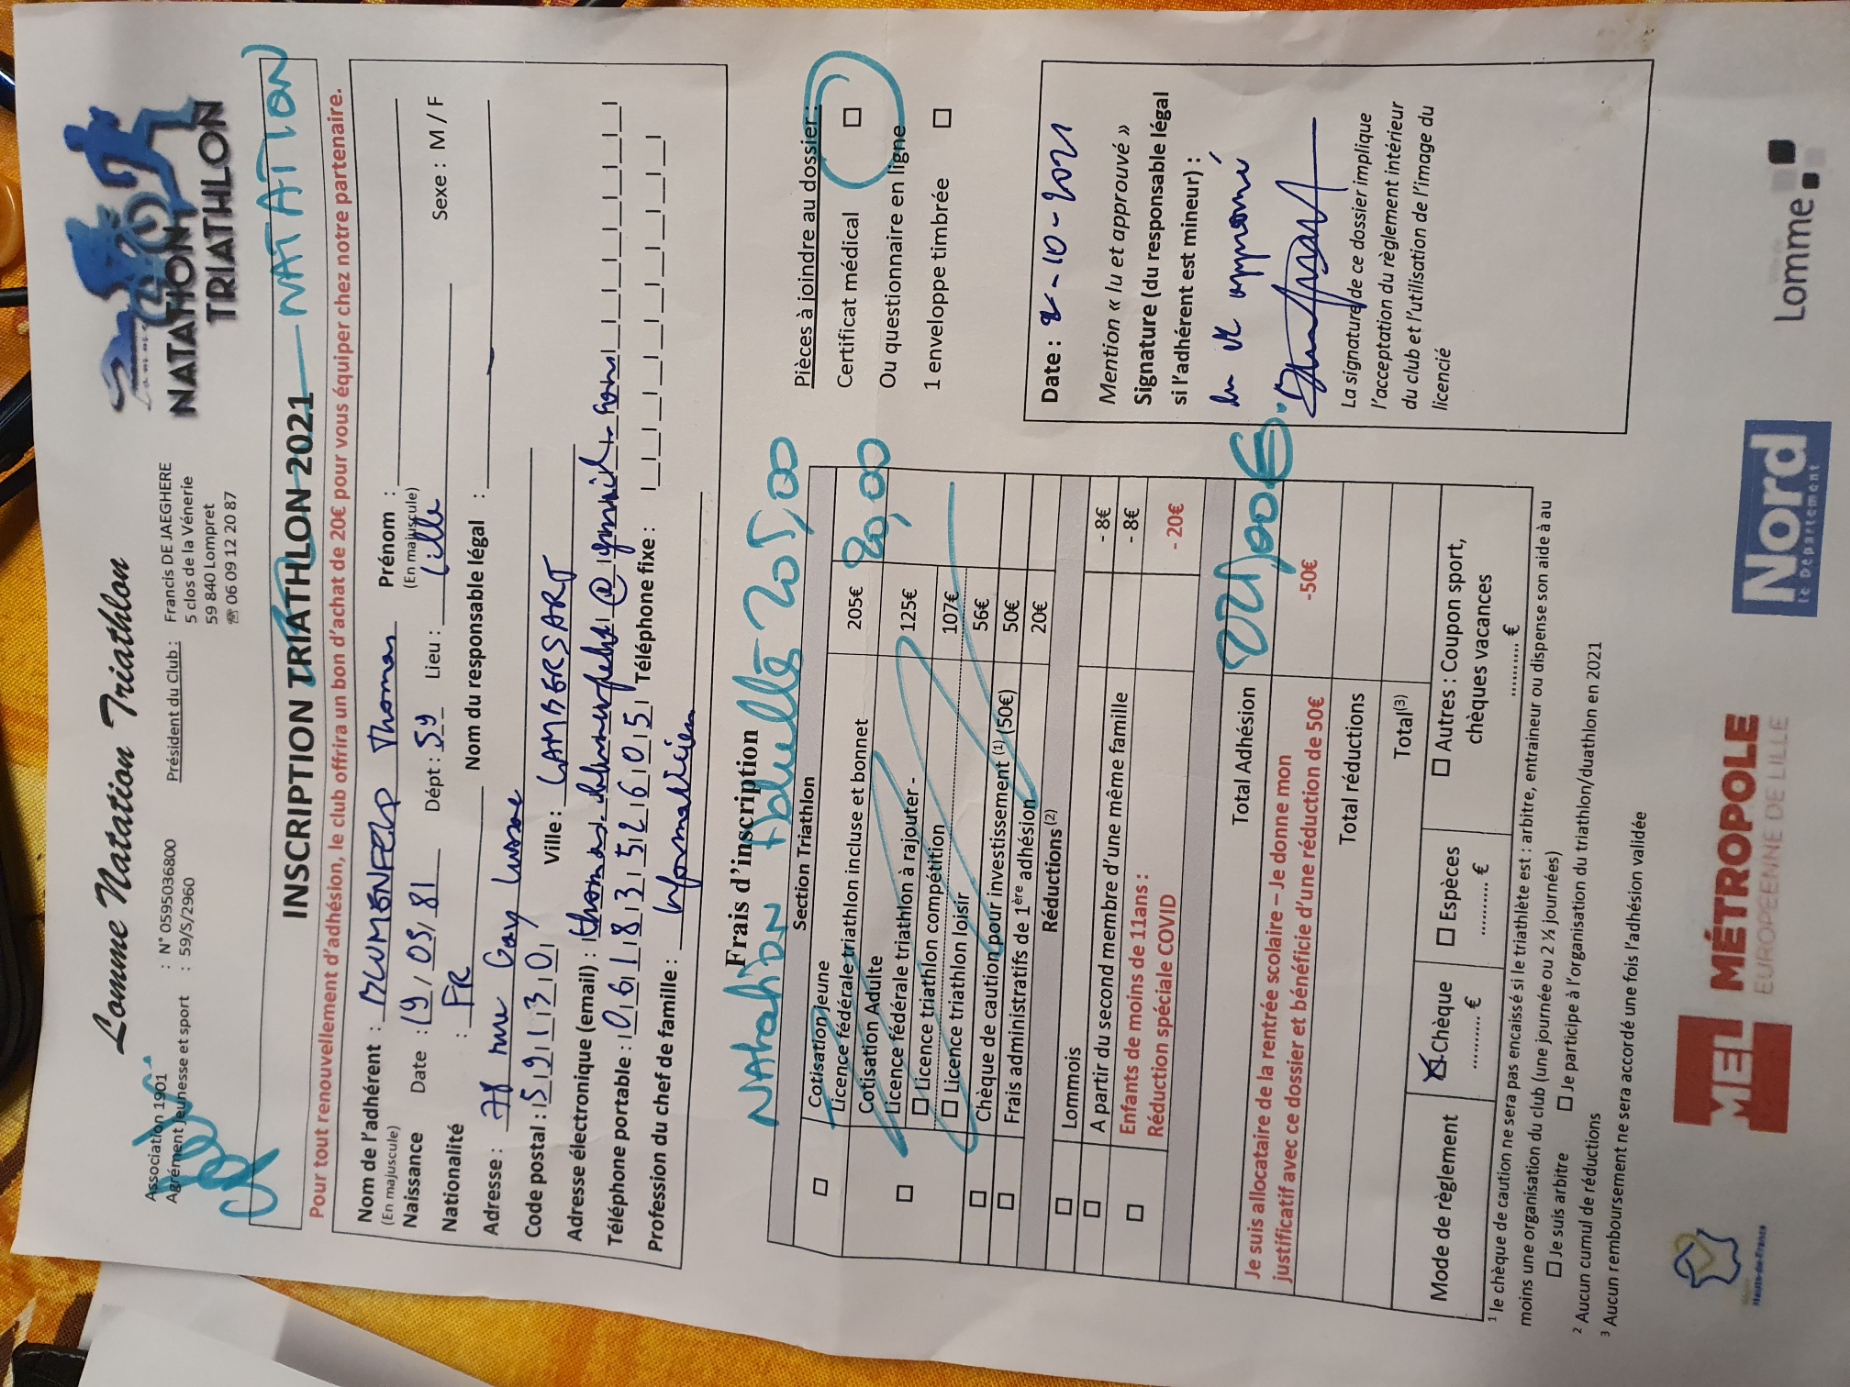 Lomme Natation Triathlon
Association 1901 : N° 0595036800
Agrément jeunesse et sport : 59/S/2960
Président du Club : Francis DE JAEGHERE
5 clos de la Vénerie
59 840 Lompret
☏ 06 09 12 20 87
NATATION
TRIATHLON
INSCRIPTION TRIATHLON 2021 NATATION
Pour tout renouvellement d'adhésion, le club offrira un bon d'achat de 20€ pour vous équiper chez notre partenaire.
Nom de l'adhérent : BLUMENFELD Thomas Prénom :
(En majuscule) (En majuscule)
Naissance Date : 19/03/81 Dépt : 59 Lieu : Lille Sexe : M / F
Nationalité : FR Nom du responsable légal :
Adresse : 78 rue Gay Lussac
Code postal : 59130 Ville : LAMBERSART
Adresse électronique (email) : thomas.blumenfeld@gmail.com
Téléphone portable : 0618352605 Téléphone fixe :
Profession du chef de famille : Informaticien
Frais d'inscription
Natation Adulte 205,00
Section Triathlon
☐ Cotisation jeune
Licence fédérale triathlon incluse et bonnet 205€ 20,00
☐ Cotisation Adulte
Licence fédérale triathlon à rajouter - 125€
☐ Licence triathlon compétition 107€
☐ Licence triathlon loisir 56€
☐ Chèque de caution pour investissement (1) (50€) 50€
☐ Frais administratifs de 1ère adhésion 20€
Réductions (2)
☐ Lommois
☐ A partir du second membre d'une même famille - 8€
☐ Enfants de moins de 11ans : - 8€
Réduction spéciale COVID - 20€
Total Adhésion 221,00€.
Je suis allocataire de la rentrée scolaire – Je donne mon
justificatif avec ce dossier et bénéficie d'une réduction de 50€ -50€
Total réductions
Total(3)
Mode de règlement ☒ Chèque ☐ Espèces ☐ Autres : Coupon sport,
chèques vacances
........... € .......... € .......... €
Pièces à joindre au dossier :
Certificat médical ☐
Ou questionnaire en ligne
1 enveloppe timbrée ☐
Date : 2-10-2021
Mention « lu et approuvé »
Signature (du responsable légal
si l'adhérent est mineur) :
lu et approuvé
La signature de ce dossier implique
l'acceptation du règlement intérieur
du club et l'utilisation de l'image du
licencié
1 le chèque de caution ne sera pas encaissé si le triathlète est : arbitre, entraineur ou dispense son aide à au
moins une organisation du club (une journée ou 2 ½ journées)
☐ Je suis arbitre ☐ Je participe à l'organisation du triathlon/duathlon en 2021
2 Aucun cumul de réductions
3 Aucun remboursement ne sera accordé une fois l'adhésion validée
Hauts-de-France
MEL MÉTROPOLE
EUROPÉENNE DE LILLE
Nord
le Département
Lomme